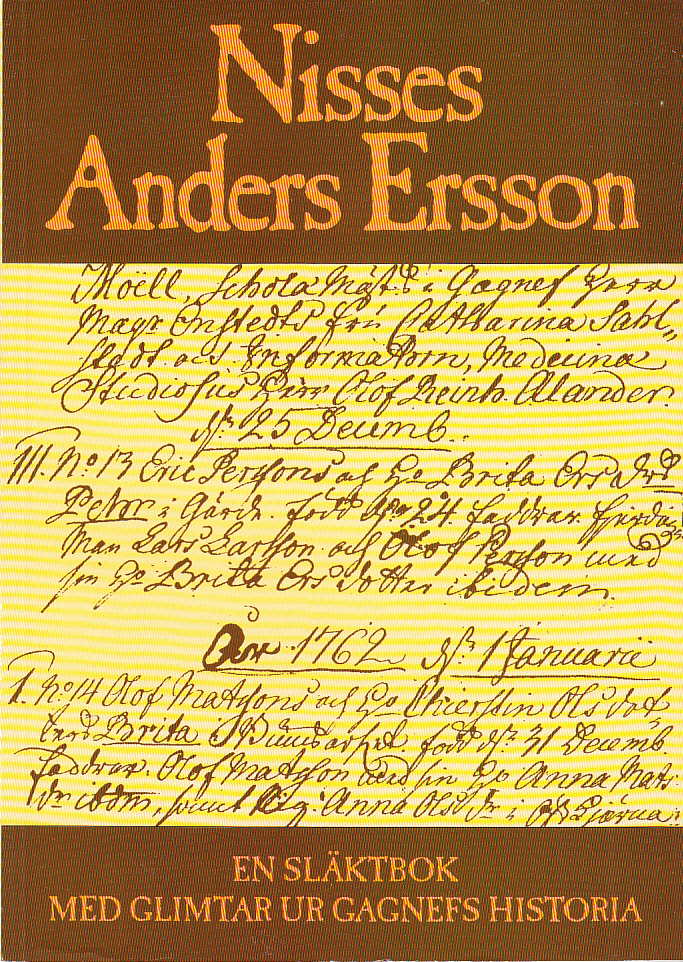 Nisses
Anders Ersson
Möell, Schola Mäst. i Gagnef Herr
Mag. Enstedts fru Catharina Sahl„
stedt och Informatorn, Medicina
Studiosus Herr Olof Reinh. Alander.
25 Decemb.
III. No. 13 Eric Perssons och Hu Brita Ers
Petter i Gärde. född 24. faddrar.
man Lars Larsson och Olof Persson med
sin Hu Brita Ers dotter ibidem.
1762 1 Januarii
I. No. 14 Olof Matssons och Hu Chierstin Olsdot„
ters Brita i född 31 Decemb.
faddrar. Olof Matsson med sin Hu Anna Mats
ibdm, samt Anna Ols i
EN SLÄKTBOK
MED GLIMTAR UR GAGNEFS HISTORIA